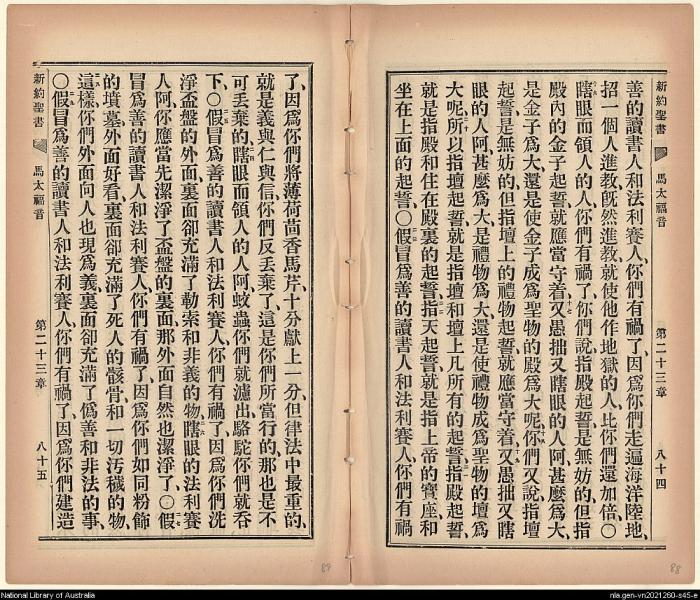 新約聖書 馬太福音 第二十三章 八十四
善的讀書人和法利賽人、你們有禍了、因爲你們走遍海洋陸地、
招一個人進教旣然進教、就使他作地獄的人、比你們還加倍、〇
瞎眼面領人的人、你們有禍了、你們說、指殿起誓是無妨的、但指
殿內的金子起誓就應當守着、又愚拙又瞎眼的人阿、甚麼爲大、
是金子爲大、還是使金子成爲聖物的殿爲大呢、你們又說、指壇
起誓是無妨的、但指壇上的禮物起誓就應當守着、又愚拙又瞎
眼的人阿、甚麼爲大、是禮物爲大、還是使禮物成爲聖物的壇爲
大呢、所以指壇起誓、就是指壇和壇上凡所有的起誓、指殿起誓、
就是指殿和住在殿裏的起誓、指天起誓、就是指上帝的寶座和
坐在上面的起誓、〇假冒爲善的讀書人和法利賽人、你們有禍
了、因爲你們將薄荷茴香馬芹十分獻上一分、但律法中最重的、
就是義與仁與信、你們反丟棄了、這是你們所當行的、那也是不
可丟棄的、瞎眼面領人的人阿、蚊蟲你們就濾出、駱駝你們就吞
下、〇假冒爲善的讀書人和法利賽人、你們有禍了、因爲你們洗
淨盃盤的外面、裏面卻充滿了勒索和非義的物、瞎眼的法利賽
人阿、你應當先潔淨了盃盤的裏面、那外面自然也潔淨了、〇假
冒爲善的讀書人和法利賽人、你們有禍了、因爲你們如同粉飾
的墳墓、外面好看、裏面卻充滿了死人的骸骨、和一切汚穢的物、
這樣你們外面向人也現爲義、裏面卻充滿了僞善和非法的事、
〇假冒爲善的讀書人和法利賽人、你們有禍了、因爲你們建造
新約聖書 馬太福音 第二十三章 八十五
89
88
National Library of Australia
nla.gen-vn2021260-s45-e